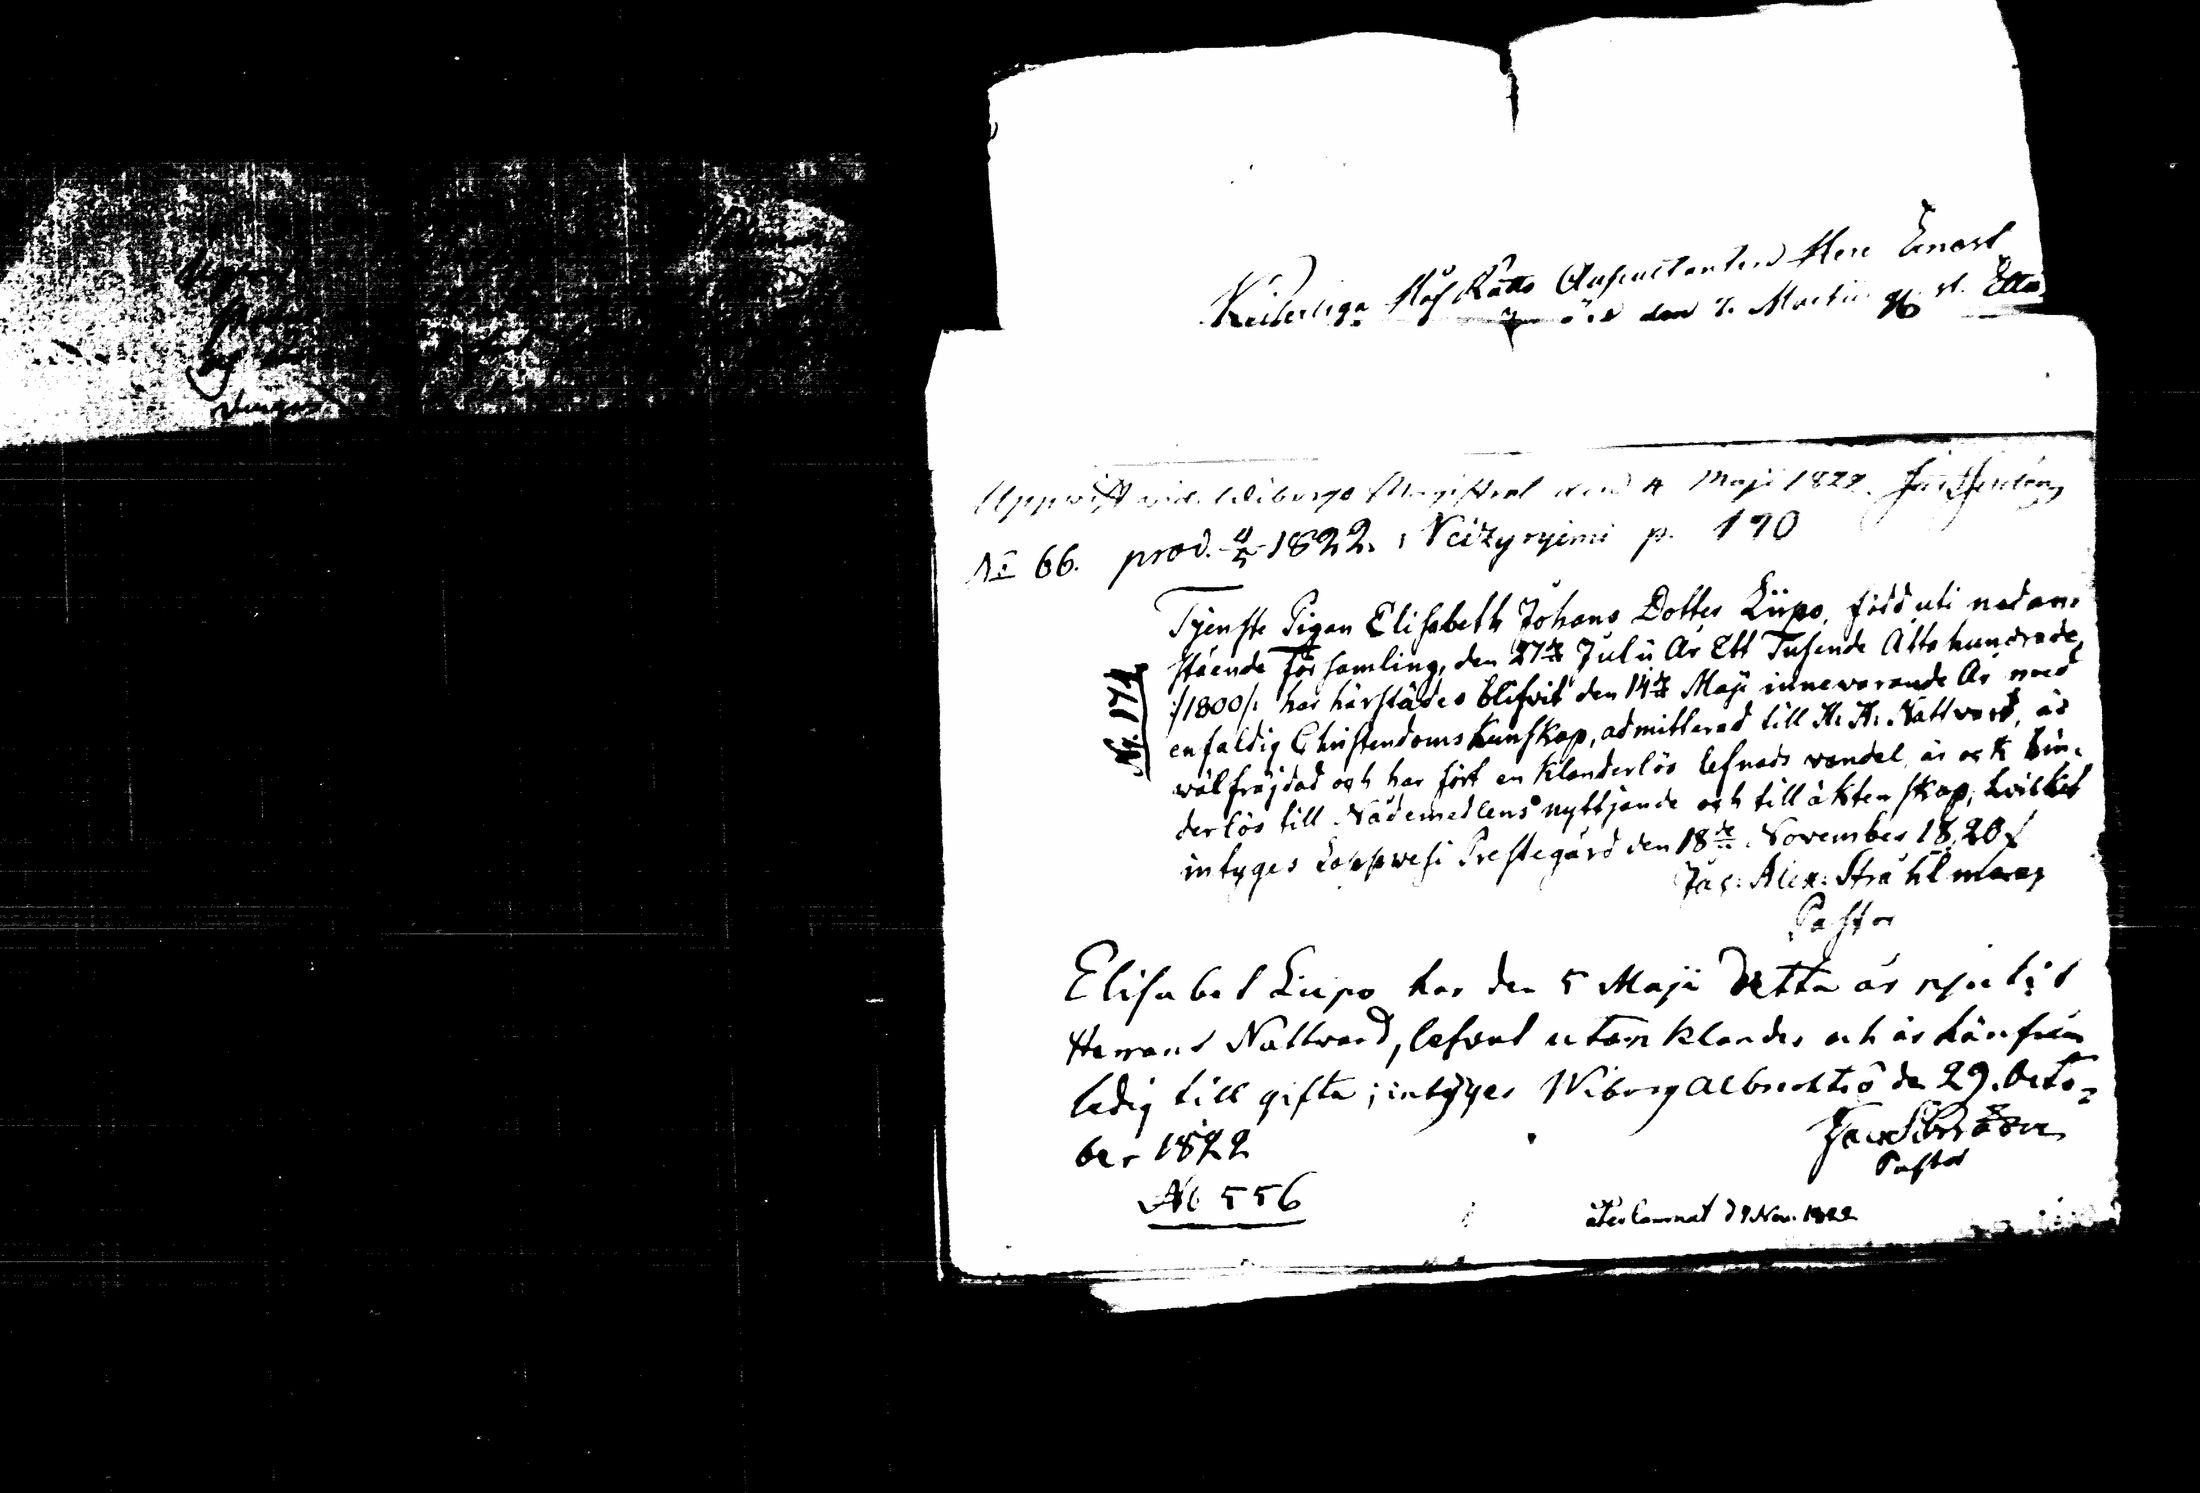 Keiserliga Hof Rätts Auscultanten Herr
den 7. Martii
Uppvist vid Wiborgs Magistrat den 4 Maji 1822.
No 66. prod. 4/5 1822. Neizyryemi p. 190
No. 174
Tjenste Pigan Elisabeth Johans Dotter Liipo, född uti nedan-
stående Församling, den 27de Julii År Ett Tusende Åtta hundrade
:/1800/: har härstädes blifvit den 14de Maji innevarande År med
enfaldig Christendoms Kunskap, admitterad till H. H. Nattvard, är
välfräjdad och har fört en klanderlös lefnads vandel, är ock hin-
derlös till Nådemedlens nyttjande och till äktenskap, hvilket
intyges Loppwesi Prestegård den 18de November 1820
Jac: Alex: Stråhlman
Pastor
Elisabet Liipo har den 5 Maji detta år njutit
Herrans Nattvard, lefvat utan klander och är härifrån
ledig till gifta; intyges Wiborg Albrechtsö den 29. Octo-
ber 1822
Pastor
No 556
återlämnat d 9 Nov. 1822